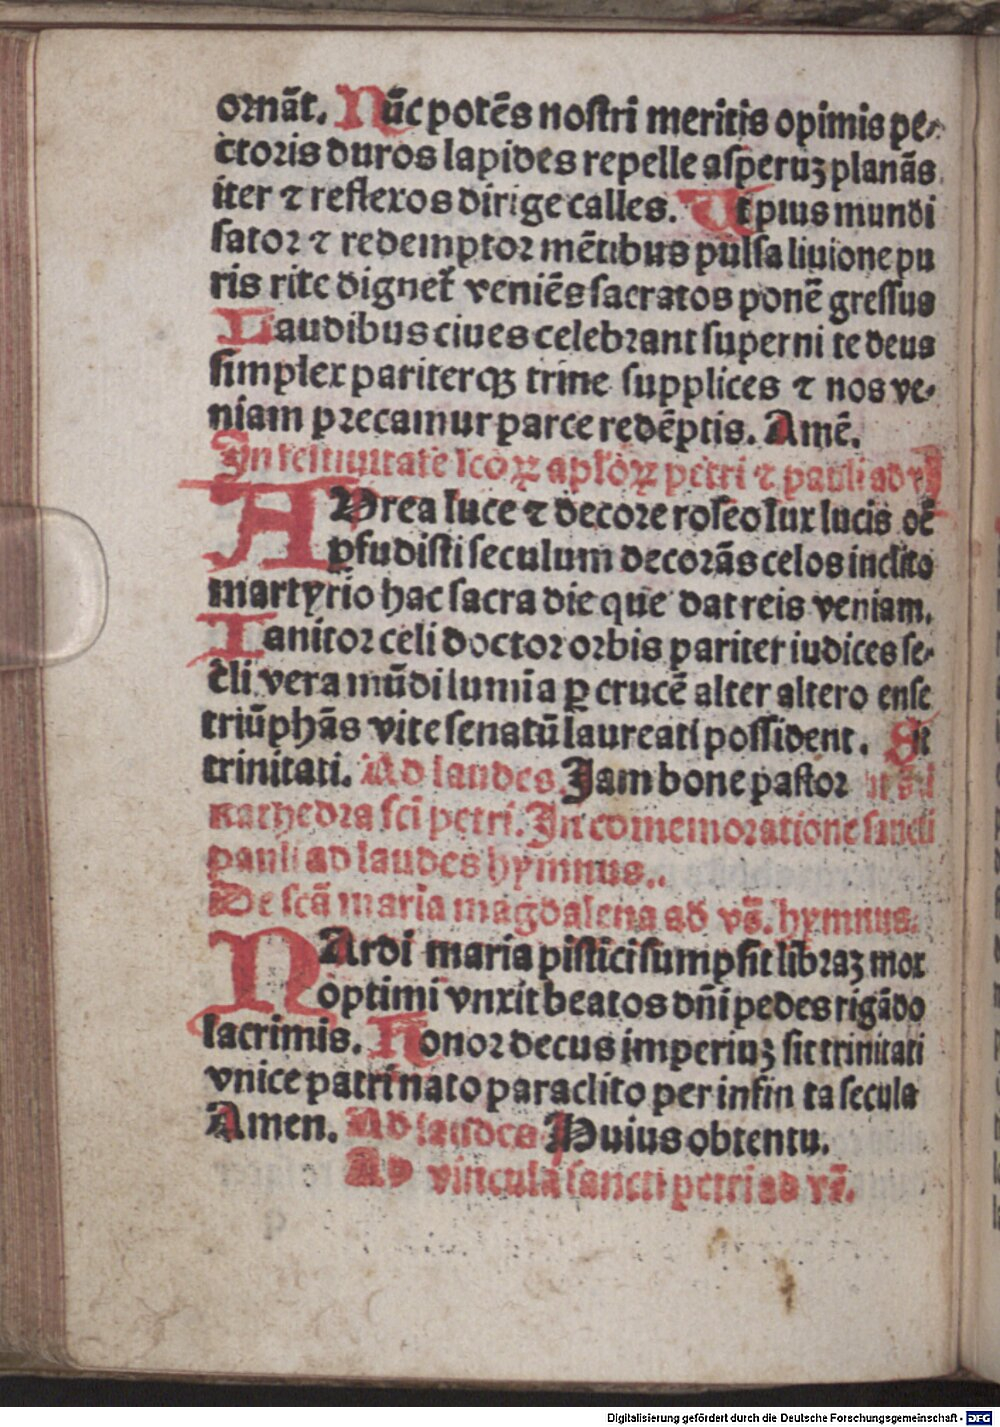 ornāt. Nūc potēs nostri meritis opimis pe⸗
ctoris duros lapides repelle asperuꝫ planās
iter ⁊ reflexos dirige calles. Ut pius mundi
sator ⁊ redemptor mētibus pulsa liuione pu
ris rite dignet᷑ veniēs sacratos ponē gressus
Laudibus ciues celebrant superni te deus
simplex pariterqꝫ trine supplices ⁊ nos ve⸗
niam precamur parce redēptis. Amē.
In festiuitate scoꝝ apl'oꝝ petri ⁊ pauli ad
AUrea luce ⁊ decore roseo lux lucis oē
ꝑfudisti seculum decorās celos inclito
martyrio hac sacra die que dat reis veniam.
Ianitor celi doctor orbis pariter iudices se⸗
cli vera mūdi lumīa ꝑ crucē alter altero ense
triūphās vite senatū laureati possident. Sit
trinitati. Ad laudes. Jam bone pastor
kathedra sci petri. In comemoratione sancti
pauli ad laudes hymnus..
De scā maria magdalena ad vs̄. hymnus.
NArdi maria pistici sumpsit libraꝫ mox
optimi vnxit beatos dn̄i pedes rigādo
lacrimis. Honor decus imperiuꝫ sit trinitati
vnice patri nato paraclito per infin ta secula
Amen. Ad laudes. Huius obtentu.
Ad vincula sancti petri ad vs̄.
Digitalisierung gefördert durch die Deutsche Forschungsgemeinschaft - DFG